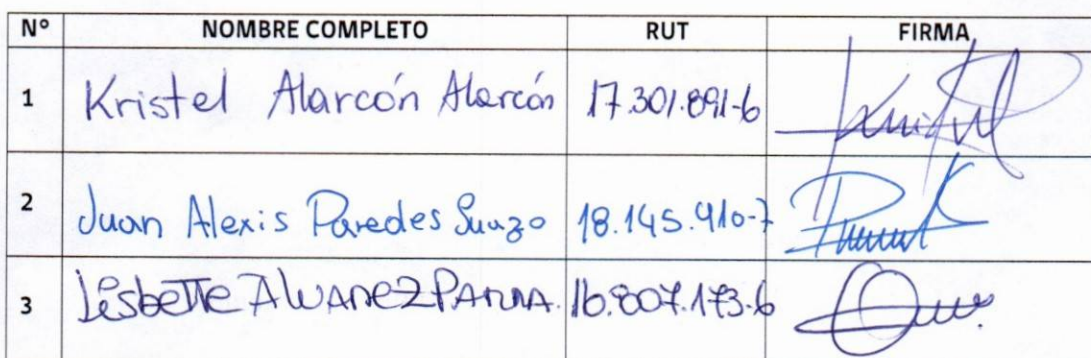 N° NOMBRE COMPLETO RUT FIRMA
1 Kristel Alarcón Alarcón 17.301.891-6
2 Juan Alexis Paredes Suazo 18.145.910-7
3 Lisbette Alvarez 16.807.173-6